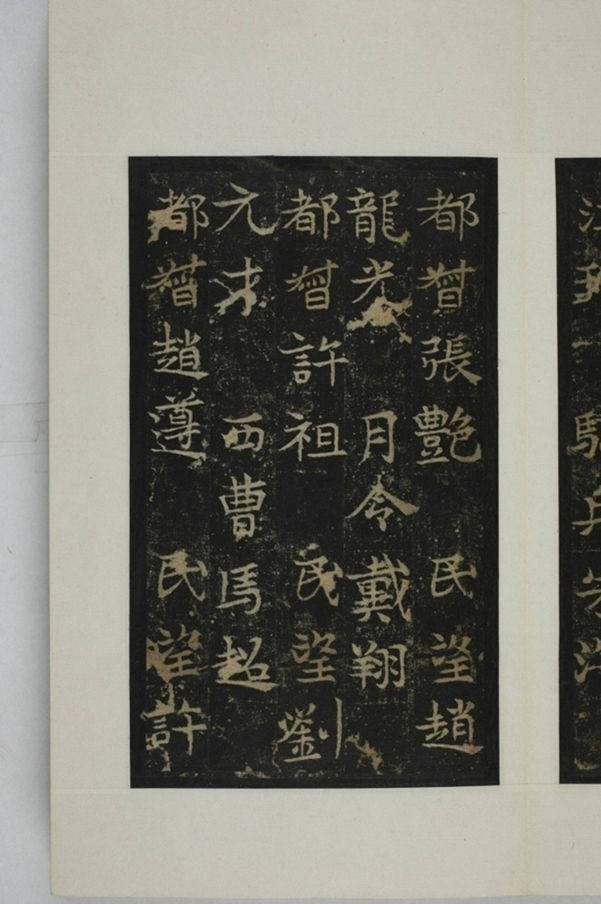 都督張艷　民望趙
龍光　月令戴翔
都督許祖　民望劉
元才　西曹馬超
都督趙遵　民望許
騎
兵